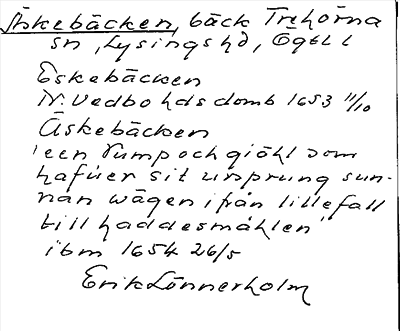 Äskebäcken, bäck Trehörna
sn, Lysingshd, Ögtl l
Eskebäcken
N. Vedbo hds domb 1653 11/10
Äskebäcken
'een rump och giöhl som
hafuer sit ursprung sun-
nan wägen ifrån lillefall
till haddesmåhlen'
ibm 1654 26/5
Erik Lönnerholm